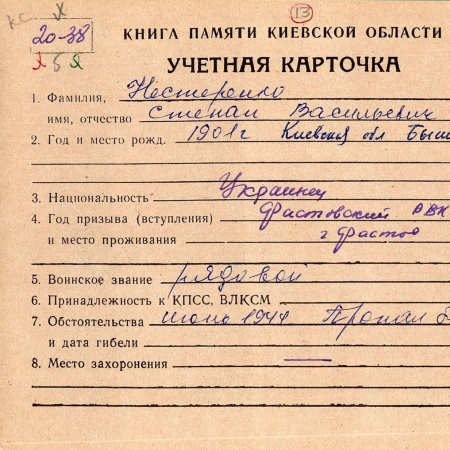 13
20-38
КНИГА ПАМЯТИ КИЕВСКОЙ ОБЛАСТИ
УЧЕТНАЯ КАРТОЧКА
1. Фамилия, Нестеренко
имя, отчество Степан Васильевич
2. Год и место рожд. 1901г Киевская обл Быш
3. Национальность Украинец
4. Год призыва (вступления) Фастовский РВК
и место проживания г Фастов
5. Воинское звание рядовой
6. Принадлежность к КПСС, ВЛКСМ
7. Обстоятельства 1944 Пропал
и дата гибели
8. Место захоронения —